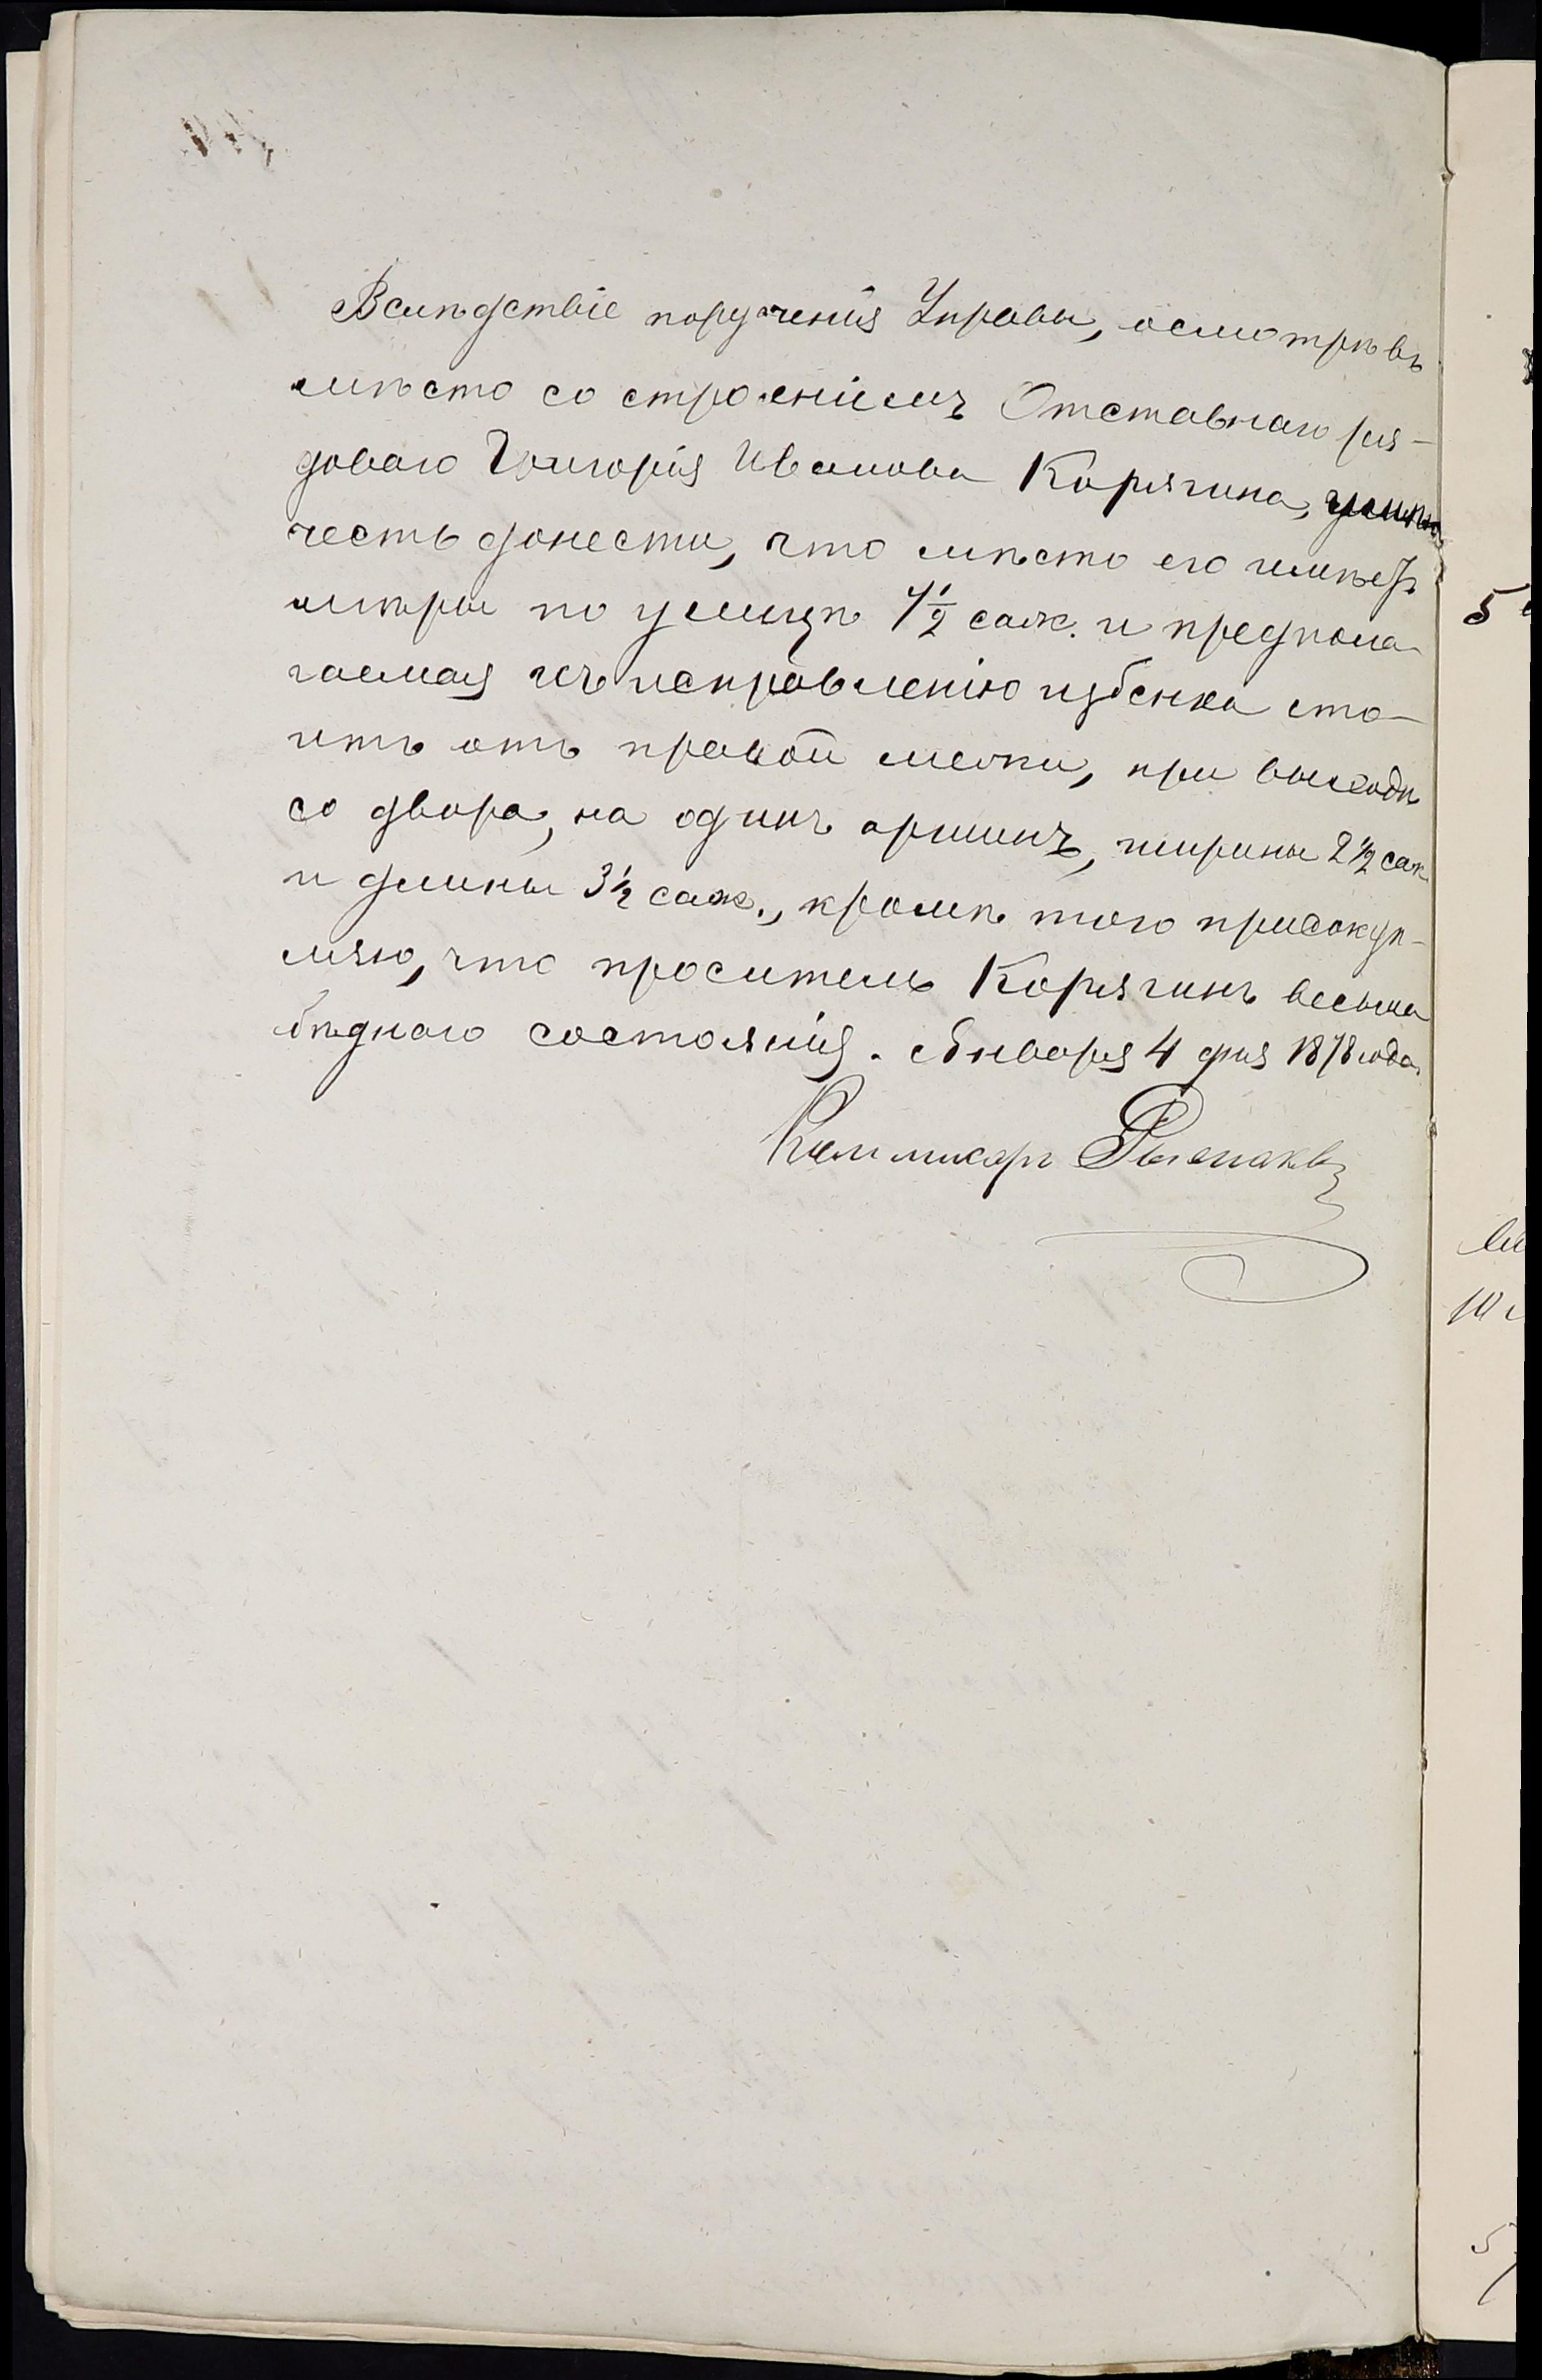 Вслѣдствіе порученія Управы, осмотрѣвъ
мѣсто со строеніемъ Отставнаго ря-
доваго Григорія Иванова Корягина, имѣю
честь донести, что мѣсто его имѣетъ
мѣры по улицѣ 4½ саж. и предпола-
гаемая къ исправленію избенка сто-
итъ отъ правой межи, при выходѣ
со двора, на одинъ аршинъ, ширины 2½ саж.
и длины 3½ саж., кромѣ того присовокуп-
ляю, что проситель Корягинъ весьма
бѣднаго состоянія. Января 4 дня 1878 года.
Коммисаръ
5